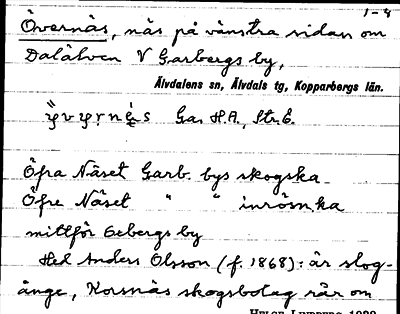 1-4
Övernäs, näs på vänstra sidan om
Dalälven V Garbergs by,
Älvdalens sn, Älvdals tg, Kopparbergs län.
Ga. H.A., Str. E.
Öfra Näset Garb. bys skogska
Öfre Näset " " inrösn.ka
mittför Gebergs by
Hed Anders Olsson (f. 1868): är slog-
änge, Korsnäs skogsbolag rår om